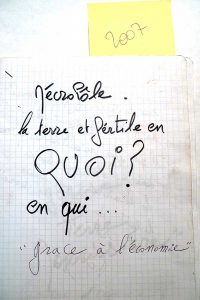 2007
Nécropôle.
la terre et fertile en
QUOI?
en qui ...
"grace à l'économie"